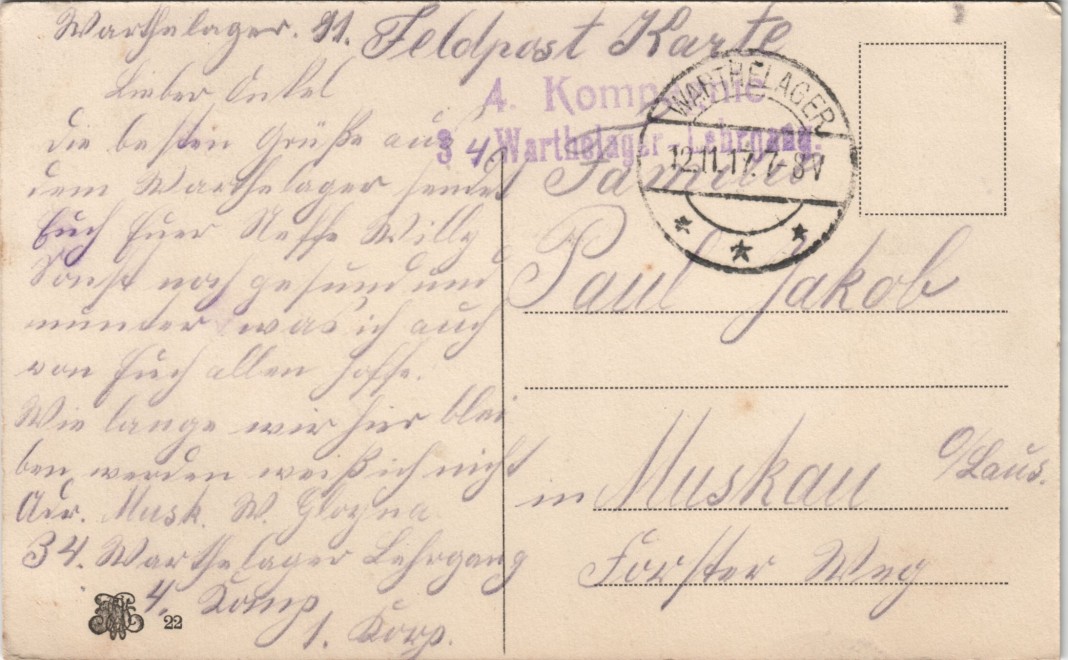 Warthelager. 11.
Lieber Onkel
die besten Grüße aus
dem Warthelager sendet
Euch Euer Neffe Willy
Sonst noch gesund und
munter was ich auch
von Euch allen hoffe.
Wie lange wir hier blei
ben werden weiß ich nicht
Adr. Musk. W. Gloyna
34. Warthelager Lehrgang
4. Komp.
1. Korp.
22
Feldpost Karte
4. Kompagnie
34 Warthelager-Lehrgang.
WARTHELAGER
12.11.17.7-8V
Familie
Paul Jakob
in Muskau O/Laus.
Forster Weg